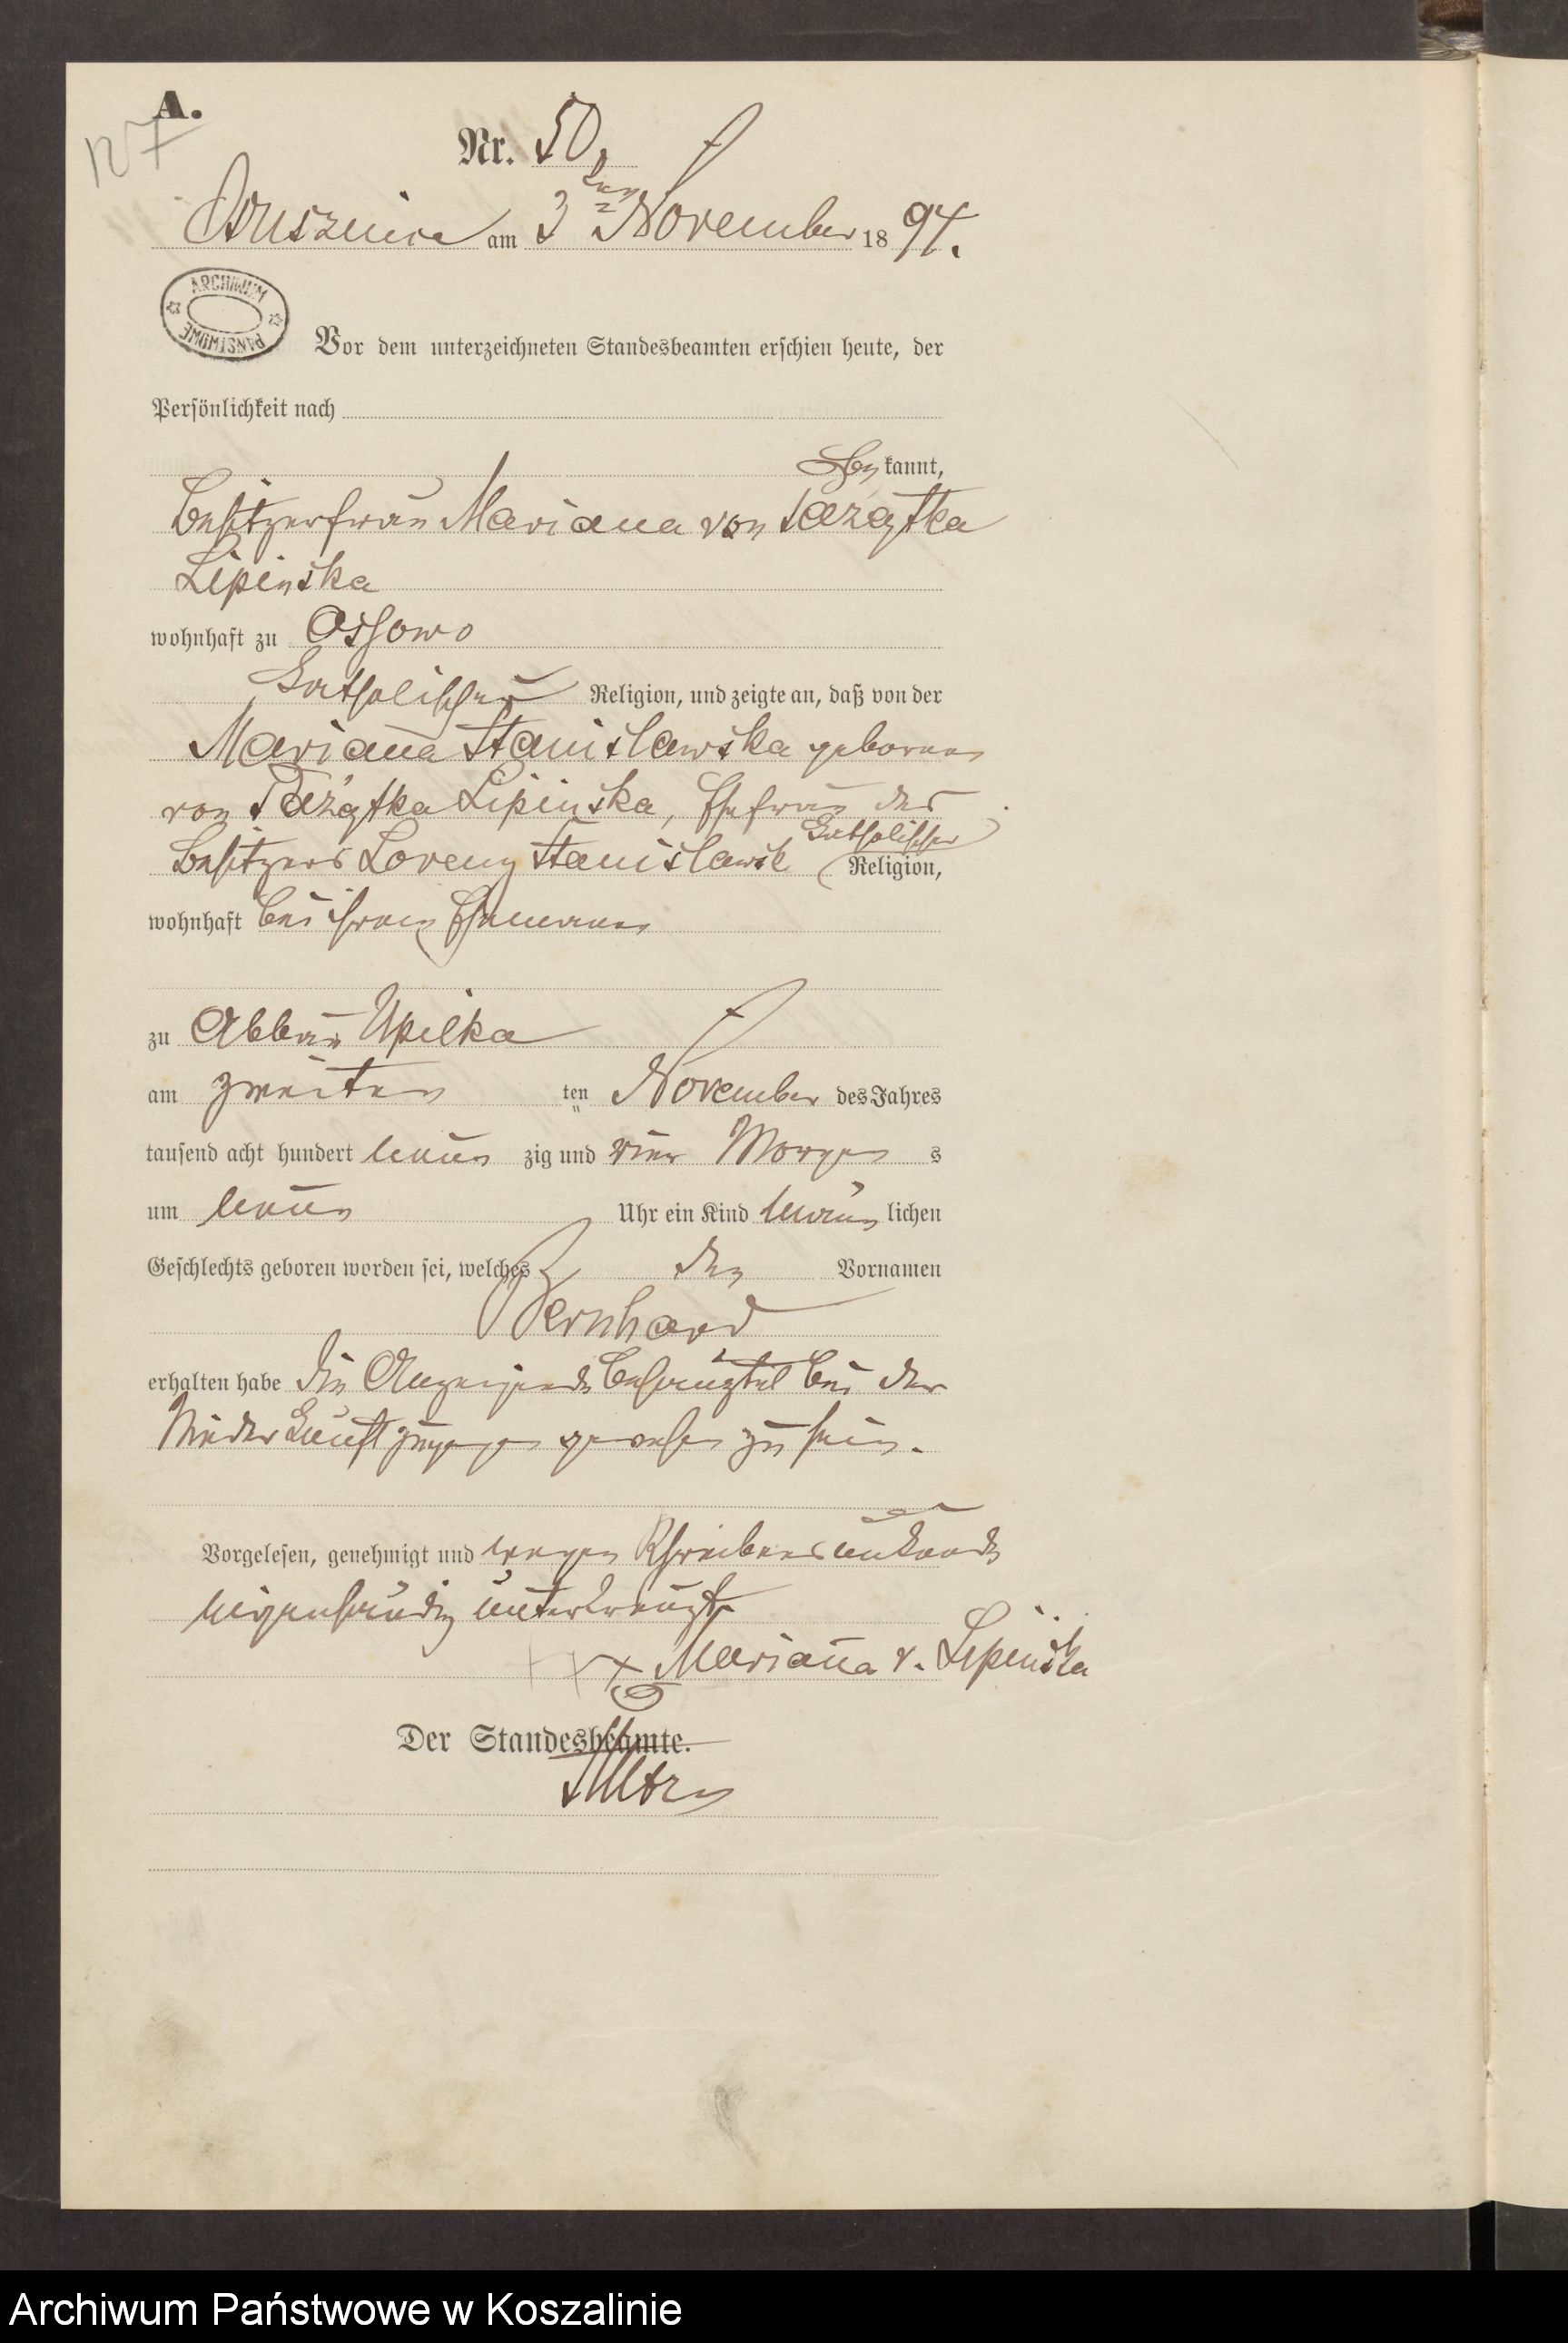 A.
127
Nr. 50.
Bruszenica am 3ten November 1894.
ARCHIWUM PAŃSTWOWE
Vor dem unterzeichneten Standesbeamten erschien heute, der
Persönlichkeit nach
be kannt,
Besitzerfrau Mariana von
Lipinska
wohnhaft zu Ossowo
Katholischer Religion, und zeigte an, daß von der
Mariana Stanislawska geborene
von Lipinska, Ehefrau des
Besitzers Lorenz Stanislawsk Katholischer Religion,
wohnhaft bei ihrem Ehemann
zu Abbau Upilka
am zweiten ten November des Jahres
tausend acht hundert neun zig und vier Morgen s
um neun Uhr ein Kind männ lichen
Geschlechts geboren worden sei, welches den Vornamen
Bernhard
erhalten habe die Anzeigende bei der
Niederkunft zugegen gewesen zu sein.
Vorgelesen, genehmigt und wegen Schreibensunkunde
eigenhändig unterkreuzt
+++ Mariana v. Lipinska
Der Standesbeamte.
Archiwum Państwowe w Koszalinie